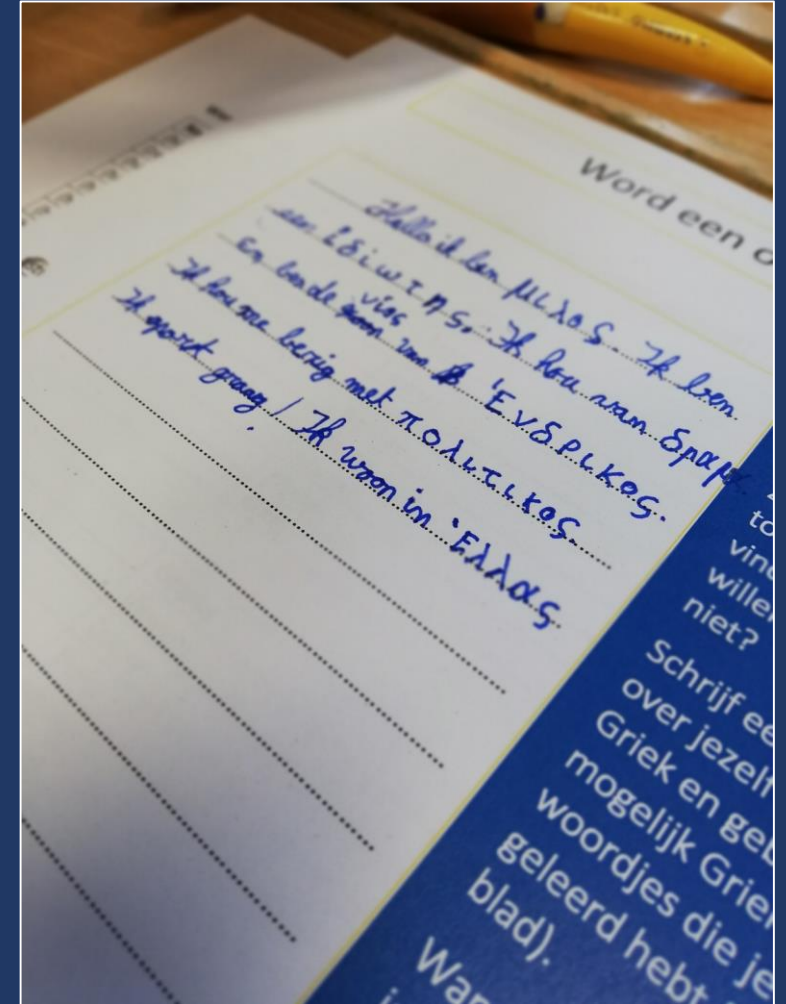 Word een o
Hallo ik ben μιλος. Ik ben
een ἰδιωτης. Ik hou van δραμα
En ben de νίος van Ἑνδρικος.
Ik hou me bezig met πολιτικος
Ik sport graag! Ik woon in Ἑλλας
to
vind
willen
niet?
Schrijf ee
over jezelf
Griek en geb
mogelijk Grie
woordjes die je
geleerd hebt
blad).
War